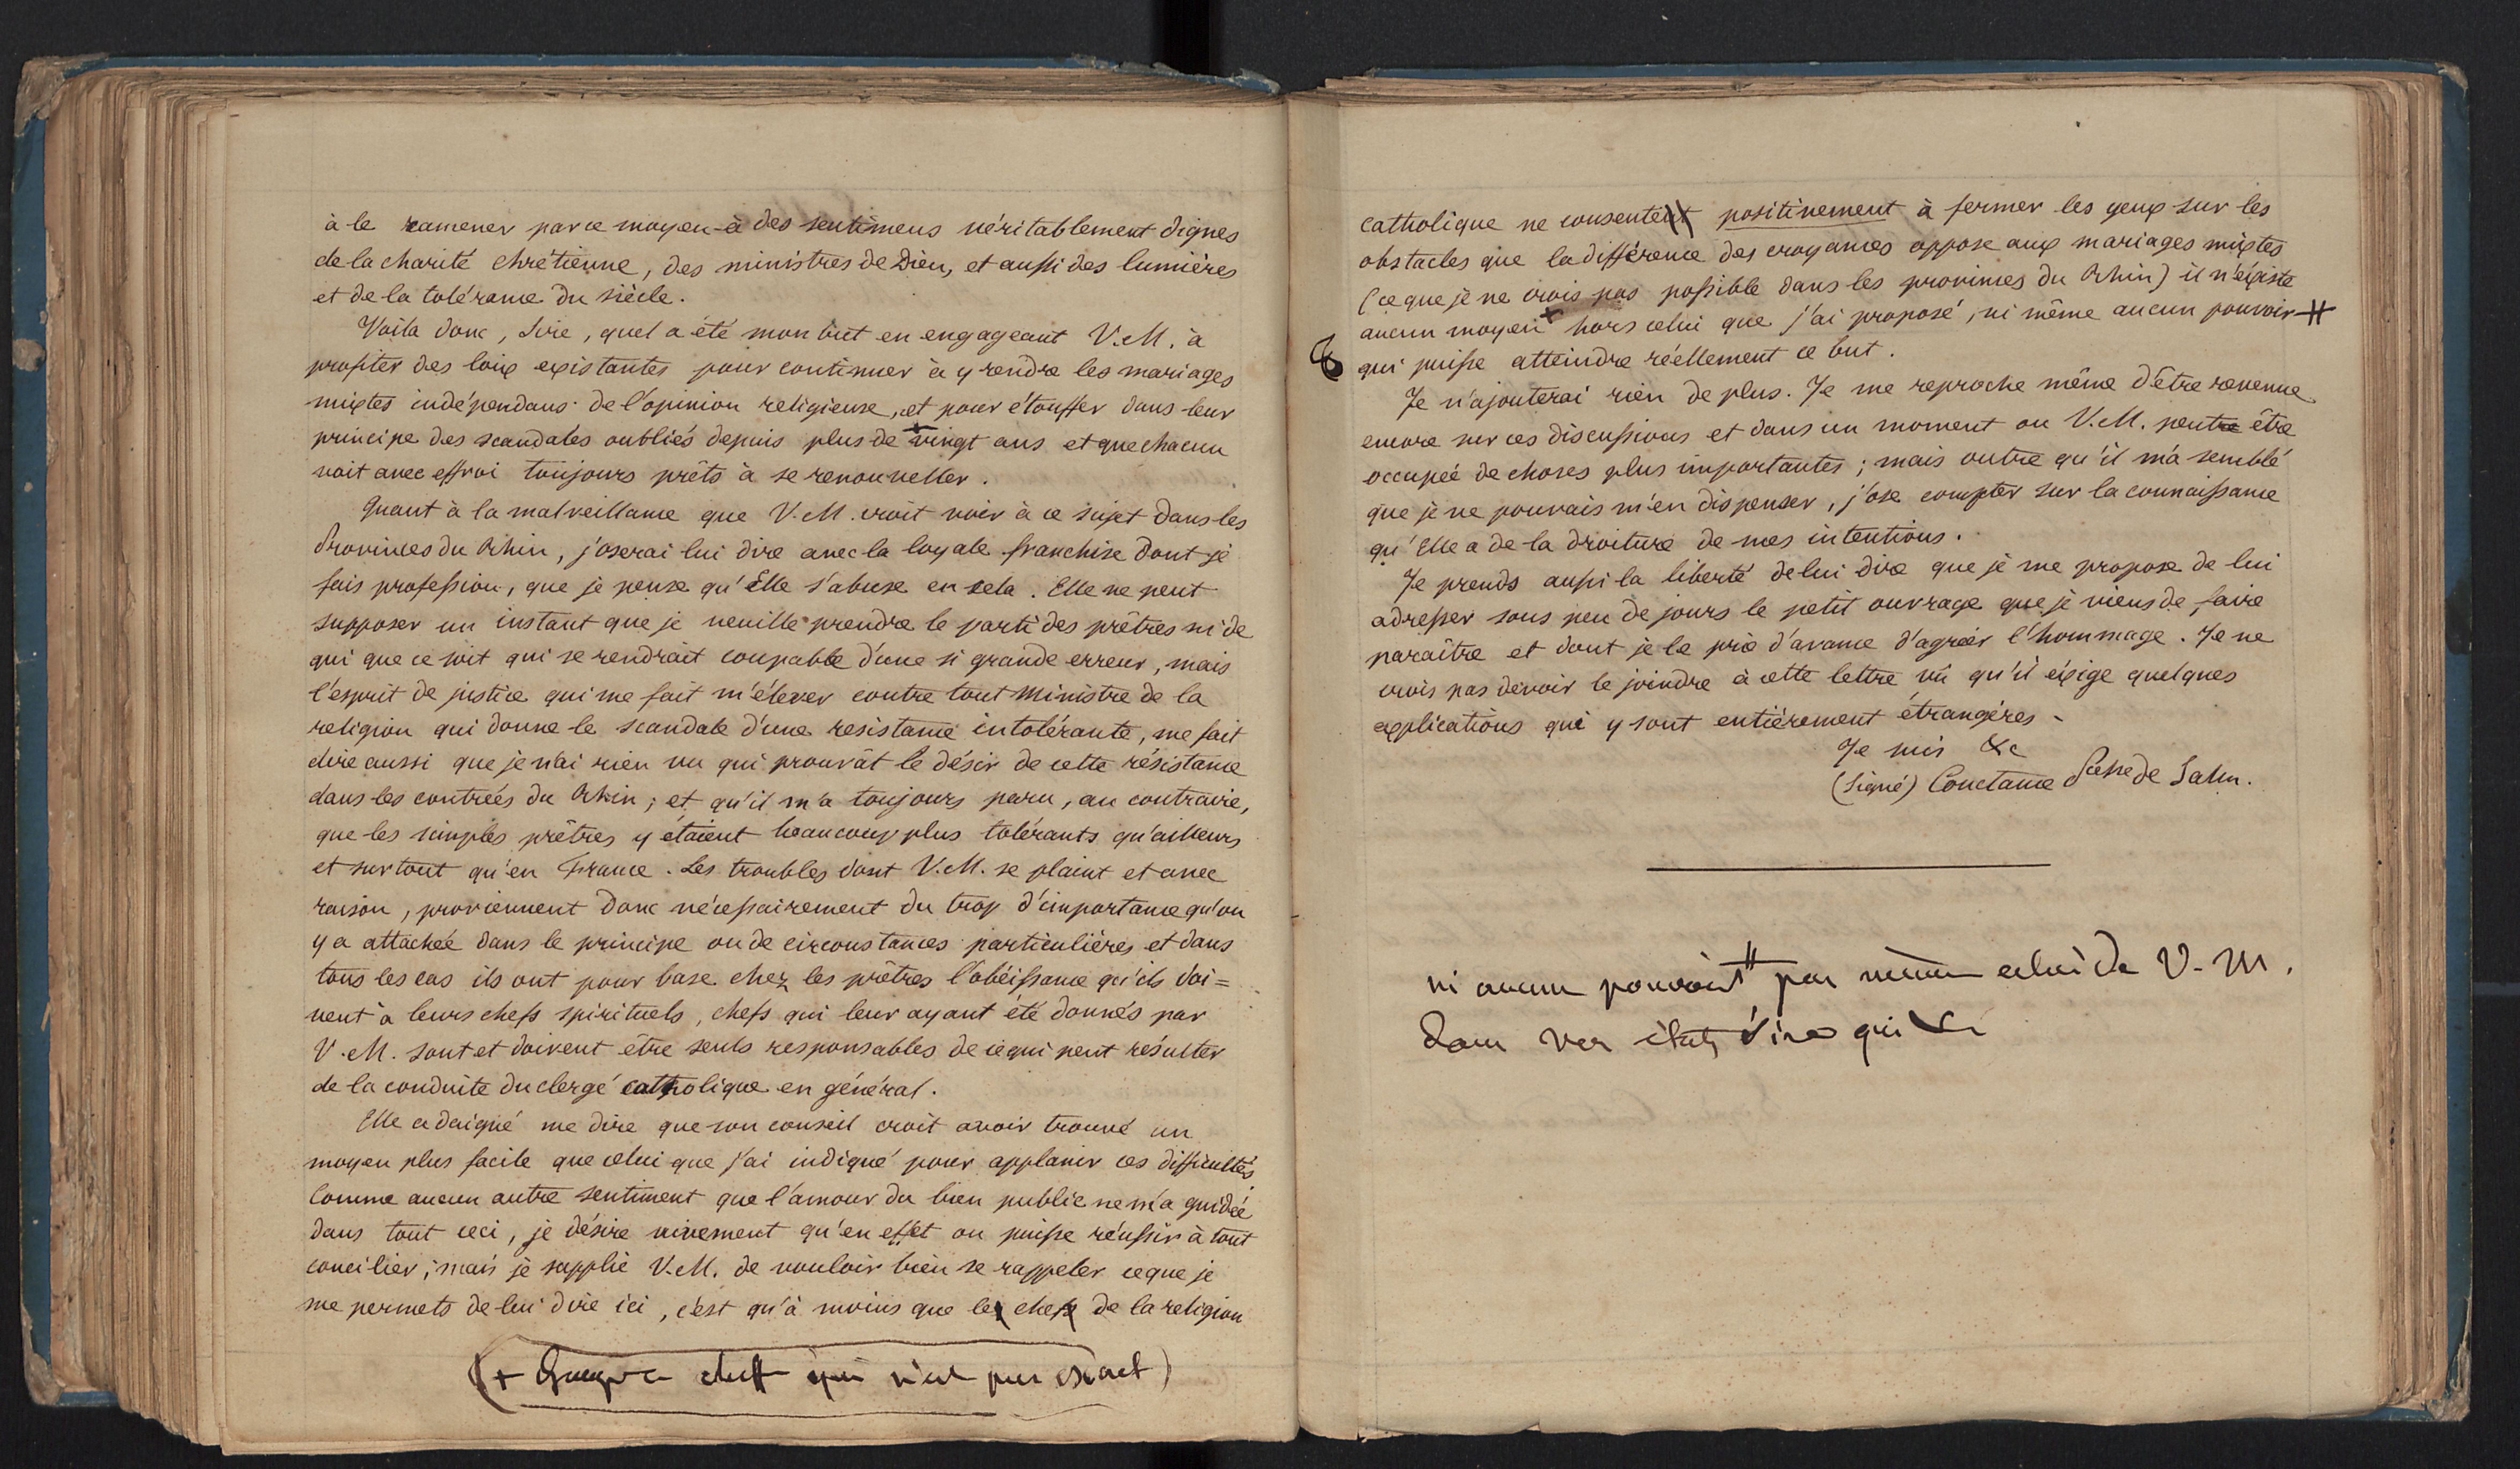 à le ramener par ce moyen à des sentimens véritablement dignes
de la charité chrétienne, des ministres de Dieu, et aussi des lumières
et de la tolérance du siècle.
Voila donc, Sire, quel a été mon but en engageant V. M. à
profiter des loix existantes pour continuer à y rendre les mariages
mixtes indépendans de l'opinion religieuse, et pour étouffer dans leur
principe des scandales oubliés depuis plus de vingt ans et que chacun
voit avec effroi toujours prêts à se renouveller.
Quant à la malveillance que V. M. croit voir à ce sujet dans les
Provinces du Rhin, j'oserai lui dire avec la loyale franchise dont je
fais profession, que je pense qu'Elle s'abuse en cela. Elle ne peut
supposer un instant que je veuille prendre le parti des prêtres ni de
qui que ce soit qui se rendrait coupable d'une si grande erreur, mais
l'esprit de justice qui me fait m'élever contre tout ministre de la
religion qui donne le scandale d'une resistance intolérante, me fait
dire aussi que je n'ai rien vu qui prouvât le désir de cette résistance
dans les contrées du Rhin; et qu'il m'a toujours paru, au contraire,
que les simples prêtres y étaient beaucoup plus tolérants qu'ailleurs
et surtout qu'en France. Les troubles dont V. M. se plaint et avec
raison, proviennent donc nécessairement du trop d'importance qu'on
y a attachée dans le principe ou de circonstances particulières et dans
tous les cas ils ont pour base chez les prêtres l'obéissance qu'ils doi=
vent à leurs chefs spirituels, chefs qui leur ayant été donnés par
V. M. sont et doivent être seuls responsables de ce qui peut résulter
de la conduite du clergé catholique en général.
Elle a daigné me dire que son conseil croit avoir trouvé un
moyen plus facile que celui que j'ai indiqué pour applanir ces difficultés
Comme aucun autre sentiment que l'amour du bien public ne m'a guidée
dans tout ceci, je désire vivement qu'en effet on puisse réussir à tout
concilier; mais je supplie V. M. de vouloir bien se rappeler ce que je
me permets de lui dire ici, c'est qu'à moins que les chefs de la religion
(+ qui n'est pas exact)
catholique ne consentent positivement à fermer les yeux sur les
obstacles que la différence des croyances oppose aux mariages mixtes
(ce que je ne crois pas possible dans les provinces du Rhin) il n'existe
aucun moyen + hors celui que j'ai proposé, ni même aucun pouvoir #
qui puisse atteindre réellement ce but.
Je n'ajouterai rien de plus. Je me reproche même d'être revenue
encore sur ces discussions et dans un moment ou V. M. peut être
occupée de choses plus importantes; mais outre qu'il m'a semblé
que je ne pouvais m'en dispenser, j'ose compter sur la connaissance
qu'Elle a de la droiture de mes intentions.
Je prends aussi la liberté de lui dire que je me propose de lui
adresser sous peu de jours le petit ouvrage que je viens de faire
paraître et dont je le prie d'avance d'agréer l'hommage. Je ne
crois pas devoir le joindre à cette lettre vû qu'il exige quelques
explications qui y sont entièrement étrangères.
Je suis &c
(Signé) Constance Psse de Salm.
ni aucun pouvoir # pas même celui de V. M.
dans vos états Sire qui &c